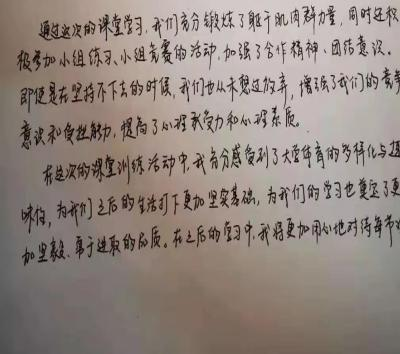 通过这次的课堂学习，我们充分锻炼了躯干肌肉群力量，同时还积
极参加小组练习、小组竞赛的活动，加强了合作精神、团结意识。
即使是在坚持不下去的时候，我们也从未想过放弃，增强了我们的竞争
意识和受挫能力，提高了心理承受力和心理素质。
在这次的课堂训练活动中，我充分感受到了大学体育的多样化与趣
味性，为我们之后的生活打下更加坚实基础，为我们的学习也奠定了更
加坚毅、勇于进取的品质。在之后的学习中，我将更加用心地对待每节